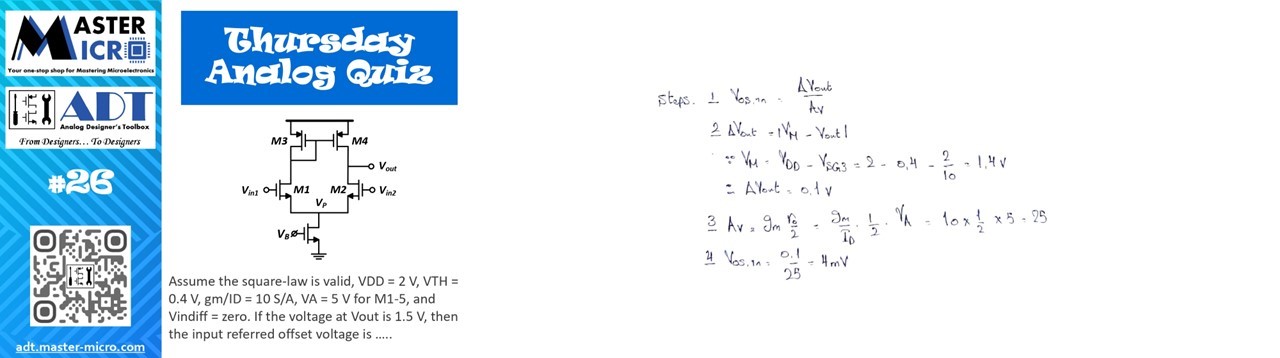 MASTER
MICRO
Your one-stop shop for Mastering Microelectronics
ADT
Analog Designer's Toolbox
From Designers… To Designers
#26
adt.master-micro.com
Thursday
Analog Quiz
M3
M4
Vout
Vin1
M1
M2
Vin2
VP
VB
Assume the square-law is valid, VDD = 2 V, VTH =
0.4 V, gm/ID = 10 S/A, VA = 5 V for M1-5, and
Vindiff = zero. If the voltage at Vout is 1.5 V, then
the input referred offset voltage is …..
Steps. 1 Vos,in = ΔVout / Av
2 ΔVout = |VM - Vout|
∵ VM = VDD - VSG3 = 2 - 0,4 - 2/10 = 1,4 V
∴ ΔVout = 0,1 V
3 Av = gm ro/2 = gm/ID . 1/2 . VA = 10 x 1/2 x 5 = 25
4 Vos,in = 0.1/25 = 4mV